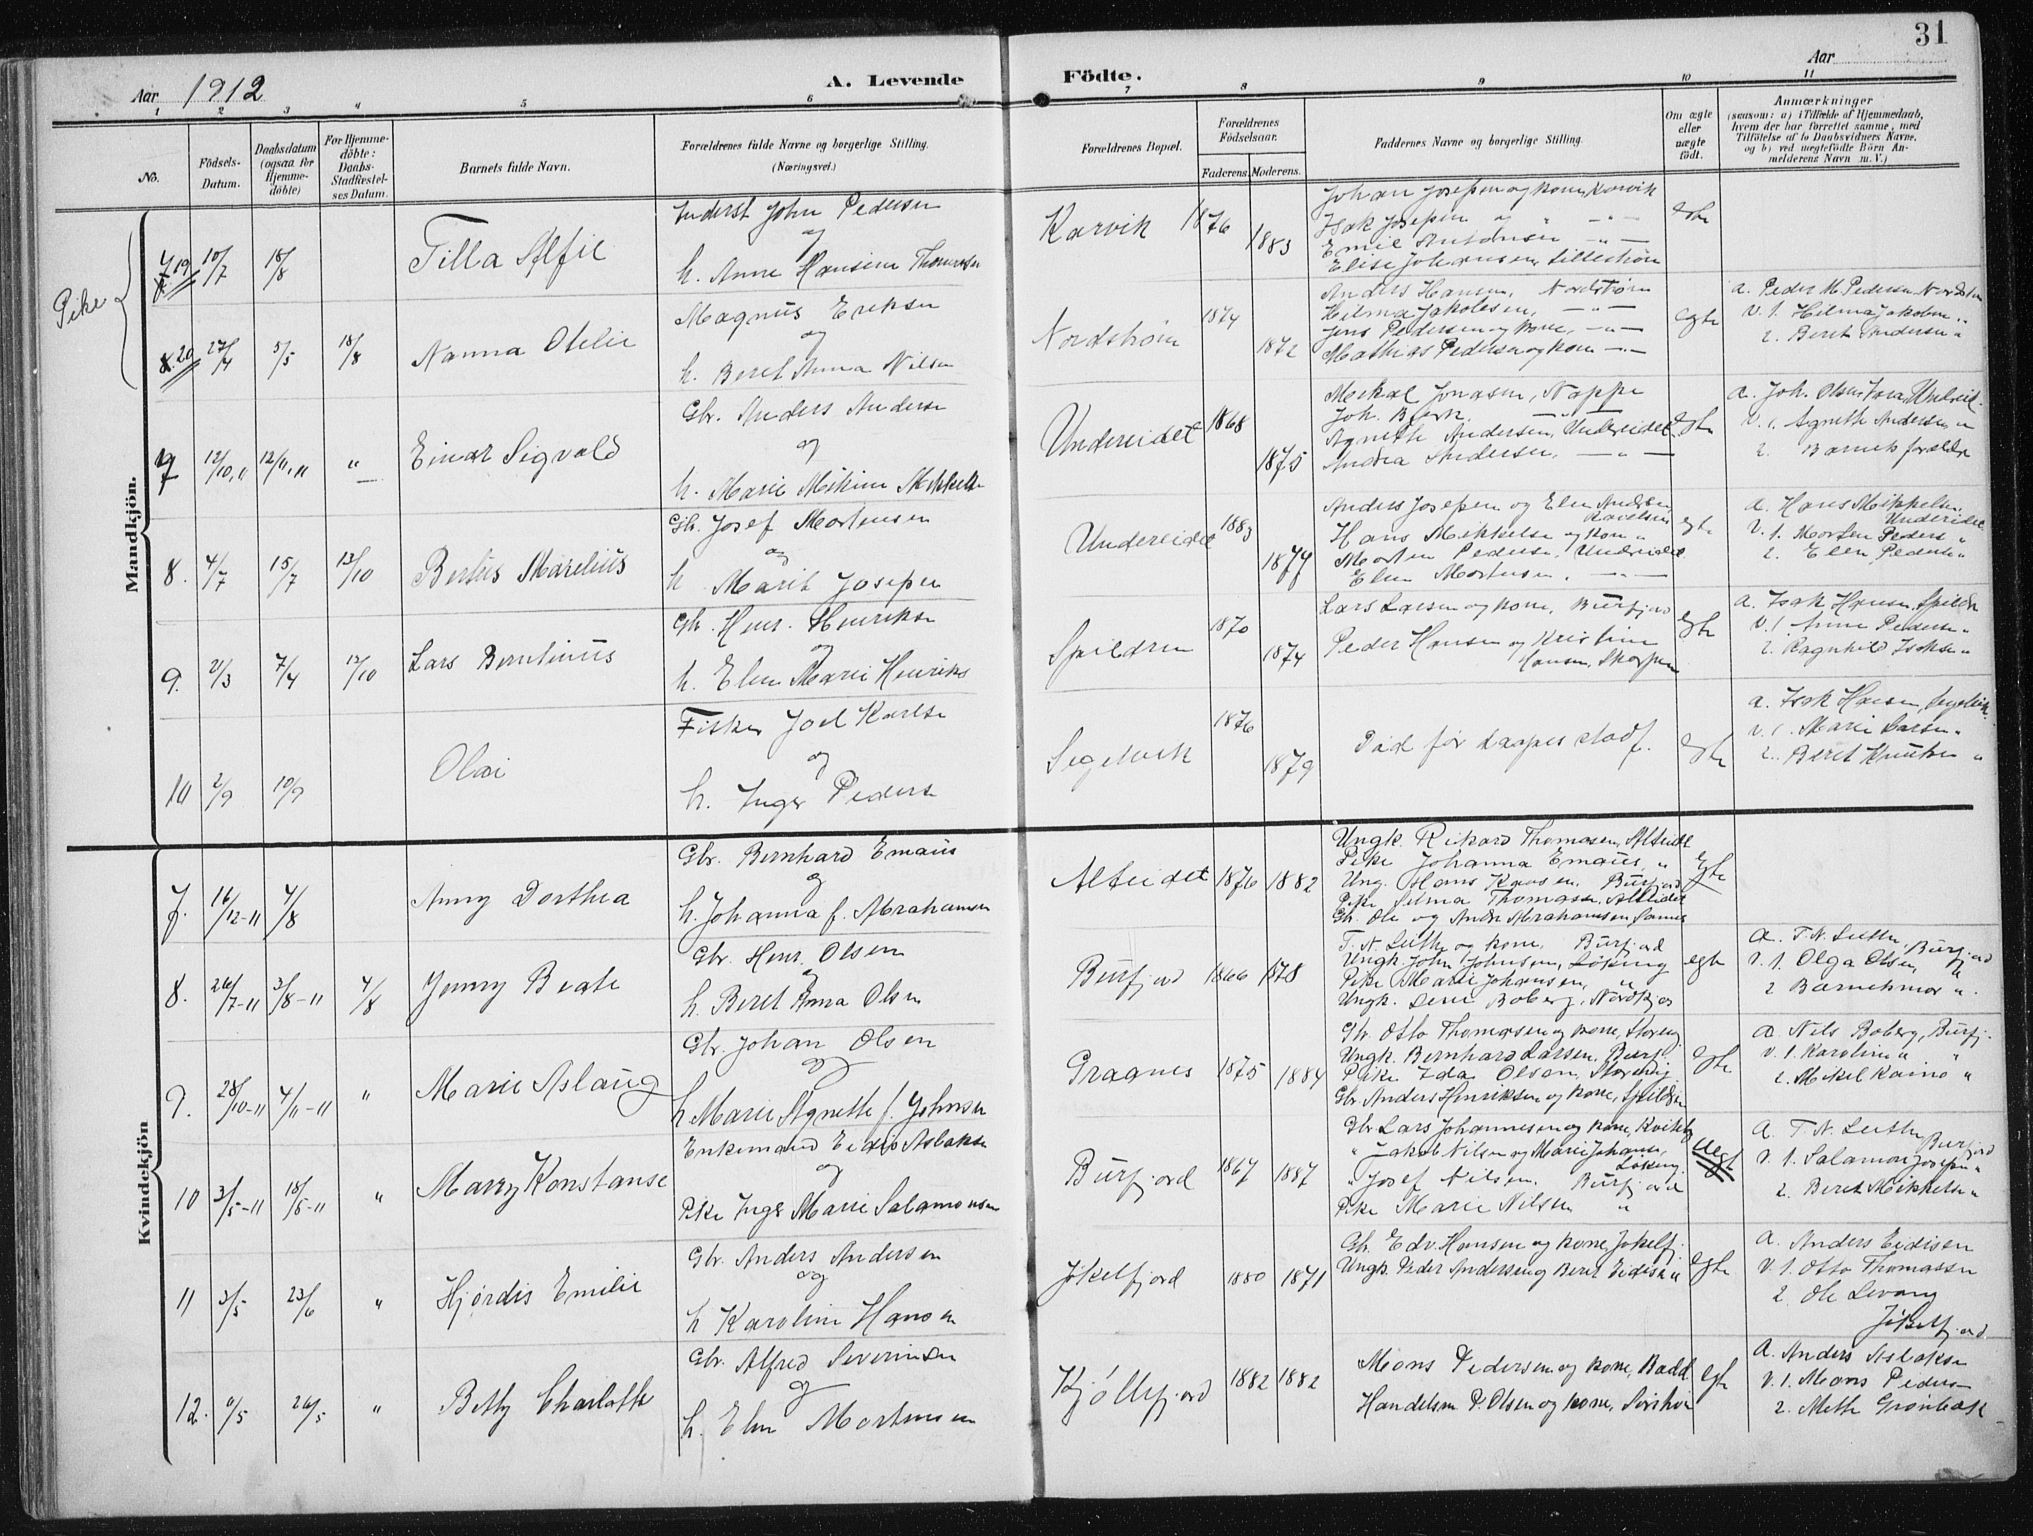 31
Aar 1912
A. Levende Födte.
Aar
1 2 3 4 5 6 7 8 9 10 11
No.
Födsels-Datum.
Daabsdatum (ogsaa for Hjemme-döbte)
For Hjemme-döbte: Daabs-Stadfæstel-ses Datum.
Barnets fulde Navn.
Forældrenes fulde Navne og borgerlige Stilling.
(Næringsvei.)
Forældrenes Bopæl.
Forældrenes Födselsaar.
Faderens. Moderens.
Faddernes Navne og borgerlige Stilling.
Om ægte eller uægte födt.
Anmærkninger
(saasom: a) i Tilfælde af Hjemmedaab,
hvem der har forrettet samme, med
Tilföielse af to Daabsvidners Navne,
og b) ved uegtefödte Börn An-
melderens Navn m. V.)
Pike
Mandkjön.
19 10/7 18/8 Tilla Alfie
Inderst John Pedersen
og
h. Anne Hansine Thomassen
Karvik 1876 1883
Johan Josefsen og kone, Karvik
Isak Josefsen og " — " —
Emil Antonsen — " —
Elise Johansen, Lillestrøm
egte
20 27/4 5/5 18/8 Nanna Otelie
Magnus Eriksen
og
h. Beret Anna Nilsen
Nordstrøm 1874 1872
Anders Hansen, Nordstrøm
Hilma Jakobsen, — " —
Jens Pedersen og kone, — " —
Mathias Pedersen og kone — " —
egte
a. Peder M. Pedersen Nordstrøm
v. 1. Hilma Jakobsen "
2. Beret Andersen "
7 12/10,11 12/11,11 " Einar Sigvald
Gbr. Anders Andersen
og
h. Marie Mikine Mikkelsen
Undereidet 1868 1875
Meikal Jonasen, Nappe
Joh. Bjerk, — " —
Agneth Andersen, Undereidet
Andrea Andersen, — " —
egte
a. Joh. Olsen Undereid.
v. 1. Agneth Andersen "
2. Barnets forældre
8. 4/7 15/7 13/10 Bertus Marelius
Gbr. Josef Mortensen
og
h. Marit Josefsen
Undereidet 1883 1874
Anders Josefsen og Elen Andersen
Hans Mikkelsen og kone "
Morten Pedersen, Undereidet
Elen Mortensen, — " —
egte
a. Hans Mikkelsen,
Undereidet
v. 1. Morten Peders "
2. Elen Pedersen "
9. 21/3 7/4 13/10 Lars Berntinius
Gbr. Henr. Henriksen
og
h. Elen Marie Henriks
Spildren 1870 1874
Lars Larsen og kone, Burfjord
Peder Hansen og Kristine
Hansen, Skorpen
egte
a. Isak Hansen, Spildr
v. 1 Anne Pedersen "
2. Ragnhild Isaksen "
10 2/9 10/9 Olai
Fisker Joel Karlsen
og
h. Inger Pedersen
Segelvik 1876 1879
Død før daapes stadf.
egte
a. Isak Hansen, Segelvik
v. 1. Marie Larsen "
2. Beret Knutsen "
Kvindekjön
7. 16/12-11 4/8 Anny Dorthea
Gbr. Bernhard Emaus
og
h. Johanna f. Abrahamsen
Alteidet 1876 1882
Ungk. Rikard Thomasen, Alteidet
Pike Johanna Emaus, "
Ung. Hans Kaasen, Burfjord
Pike Selma Thomasen, Alteidet
Gb. Ole og Andr. Abrahamsen
Egte
8. 26/7-11 3/8-11 4/8 Jenny Beate
Gbr. Henr. Olsen
og
h. Beret Anna Olsen
Burfjord 1866 1878
T. N. Sæther og kone, Burfjord
Ungk. John Johnsen, Løkeng
Pike Marie Johansen, "
Ungk. Boberg, Nordkjos
egte
a. T. N. Sæther, Burfjord
v. 1. Olga Olsen, "
2 Barnets mor "
9. 28/10-11 4/11-11 " Marie Aslaug
Gbr. Johan Olsen
og
h Marie Agnette f. Johnsen
Gragnes 1875 1884
Gb. Otto Thomassen og kone, Storeng
Ungk. Bernhard Larsen, Burfj.
Pike Ida Olsen, Storeng
Gbr. Anders Henriksen og kone, Spildren
egte
a. Nils Boberg, Burfj.
v. 1. Karoline " "
2. Mikel Kaino "
10 3/5-11 18/5-11 " Marry Konstanse
Enkemand Eidis Aslaksen
og
Pike Inger Marie Salamonsen
Burfjord 1867 1887
Gbr Lars Johannesen og kone, Kviteb
" Jakob Nilsen og Marie Johansen,
Løkeng
" Josef Nilsen, Burfjord
Pike Marie Nilsen "
Uegt
a. T. N. Sæther, Burfjord
v. 1. Salamon Josefsen "
2. Beret Mikkelsen "
11 3/5 23/6 " Hjørdis Emilie
Gbr. Anders Andersen
og
h Karoline Hansen
Jøkelfjord 1880 1871
Gb. Edv. Hansen og kone, Jøkelfj.
Ungk. Peder Andersen og Beret Eidisen "
egte
a. Anders Eidisen
v. 1. Otto Thomassen
2. Ole Levang
Jøkelfjord
12. 9/5 26/5 " Betty Charlotte
Gbr. Alfred Severinsen
og
h. Elen Mortensen
Kjøllefjord 1882 1882
Mons Pedersen og kone, Badd
Handelsm P. Olsen og kone,
egte
a. Anders Aslaksen
v. 1. Mons Pedersen
2. Meth Grønbæk